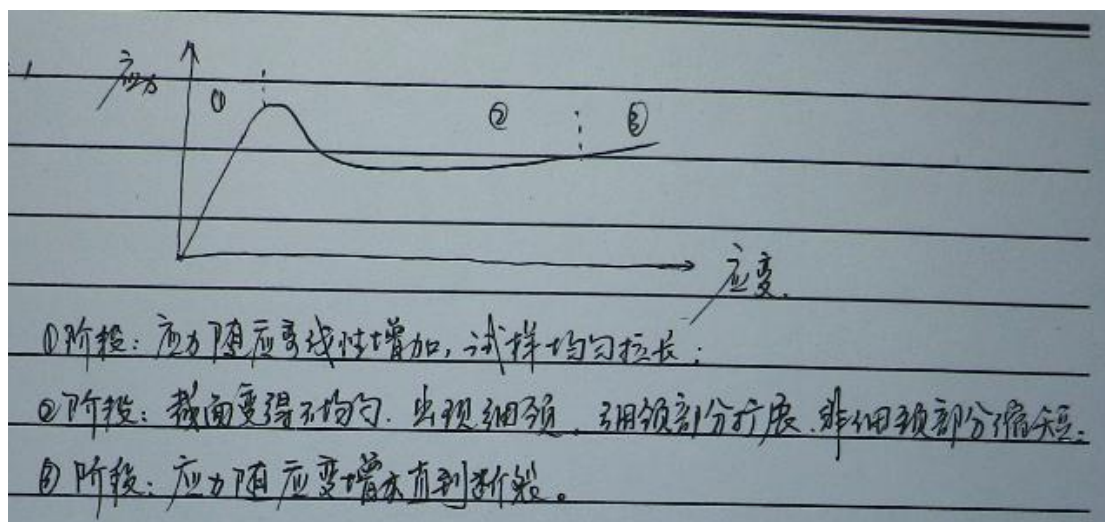 应力
① ② ③
应变.
①阶段：应力随应变线性增加，试样均匀拉长；
②阶段：截面变得不均匀．出现细颈．细颈部分扩展．非细颈部分缩短；
③阶段：应力随应变增大直到断裂。